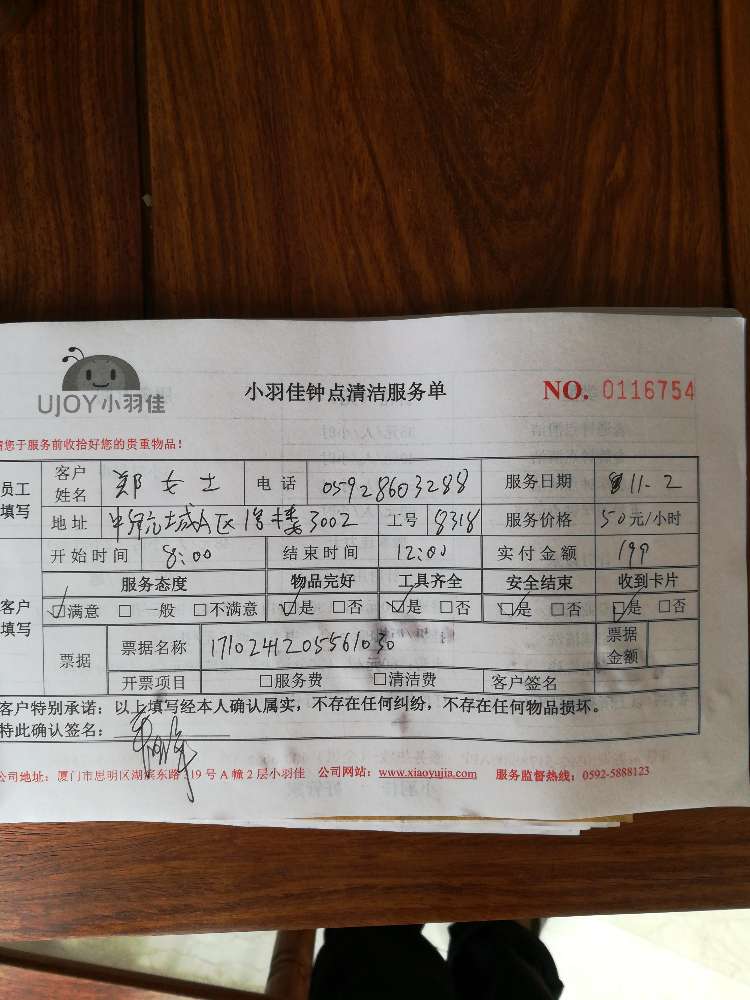 UJOY小羽佳 小羽佳钟点清洁服务单 NO. 0116754
请您于服务前收拾好您的贵重物品!
员工填写 客户姓名 郑女士 电话 05928603288 服务日期 11.2
地址 中航城A区 楼3002 工号 8318 服务价格 50元/小时
开始时间 8:00 结束时间 12:00 实付金额 199
客户填写 服务态度 物品完好 工具齐全 安全结束 收到卡片
☑满意 □一般 □不满意 ☑是 □否 ☑是 □否 ☑是 □否 ☑是 □否
票据 票据名称 17102412055561030 票据金额
开票项目 □服务费 □清洁费 客户签名
客户特别承诺:以上填写经本人确认属实,不存在任何纠纷,不存在任何物品损坏。
特此确认签名:
公司地址:厦门市思明区湖滨东路319号A幢2层小羽佳 公司网站:www.xiaoyujia.com 服务监督热线:0592-5888123